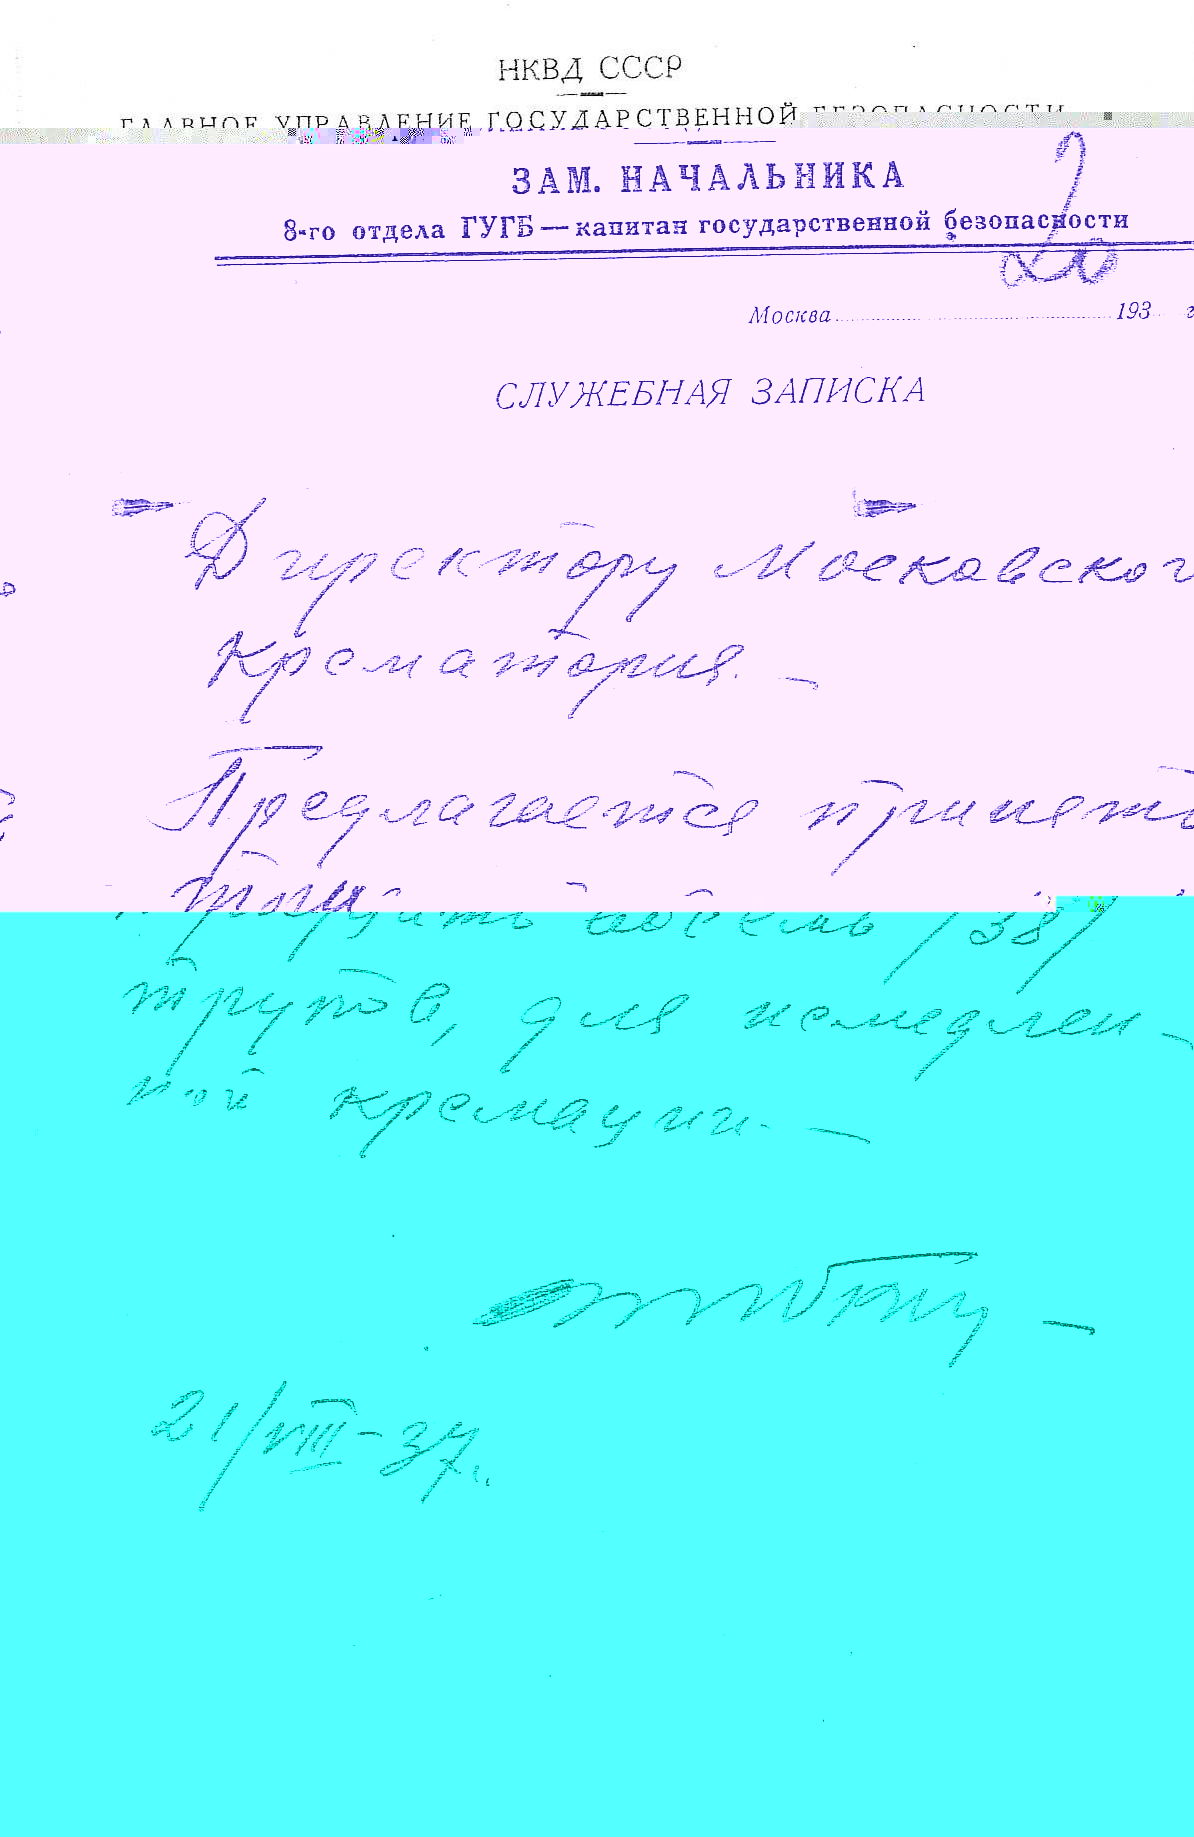 НКВД СССР
ГЛАВНОЕ УПРАВЛЕНИЕ ГОСУДАРСТВЕННОЙ БЕЗОПАСНОСТИ
ЗАМ. НАЧАЛЬНИКА
8-го отдела ГУГБ — капитан государственной безопасности
20
Москва 193 г
СЛУЖЕБНАЯ ЗАПИСКА
Директору Московского
Крематория. —
Предлагается принять
восемь /38/
трупов, для немедлен-
ной кремации. —
21/VIII-37г.